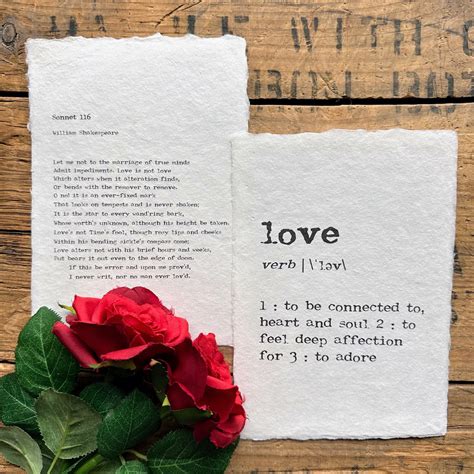 Sonnet 116
William Shakespeare
Let me not to the marriage of true minds
Admit impediments. Love is not love
Which alters when it alteration finds,
Or bends with the remover to remove.
O no! it is an ever-fixed mark
That looks on tempests and is never shaken;
It is the star to every wand'ring bark,
Whose worth's unknown, although his height be taken.
Love's not Time's fool, though rosy lips and cheeks
Within his bending sickle's compass come;
Love alters not with his brief hours and weeks,
But bears it out even to the edge of doom.
If this be error and upon me prov'd,
I never writ, nor no man ever lov'd.
love
verb | \'ləv\
1 : to be connected to,
heart and soul 2 : to
feel deep affection
for 3 : to adore